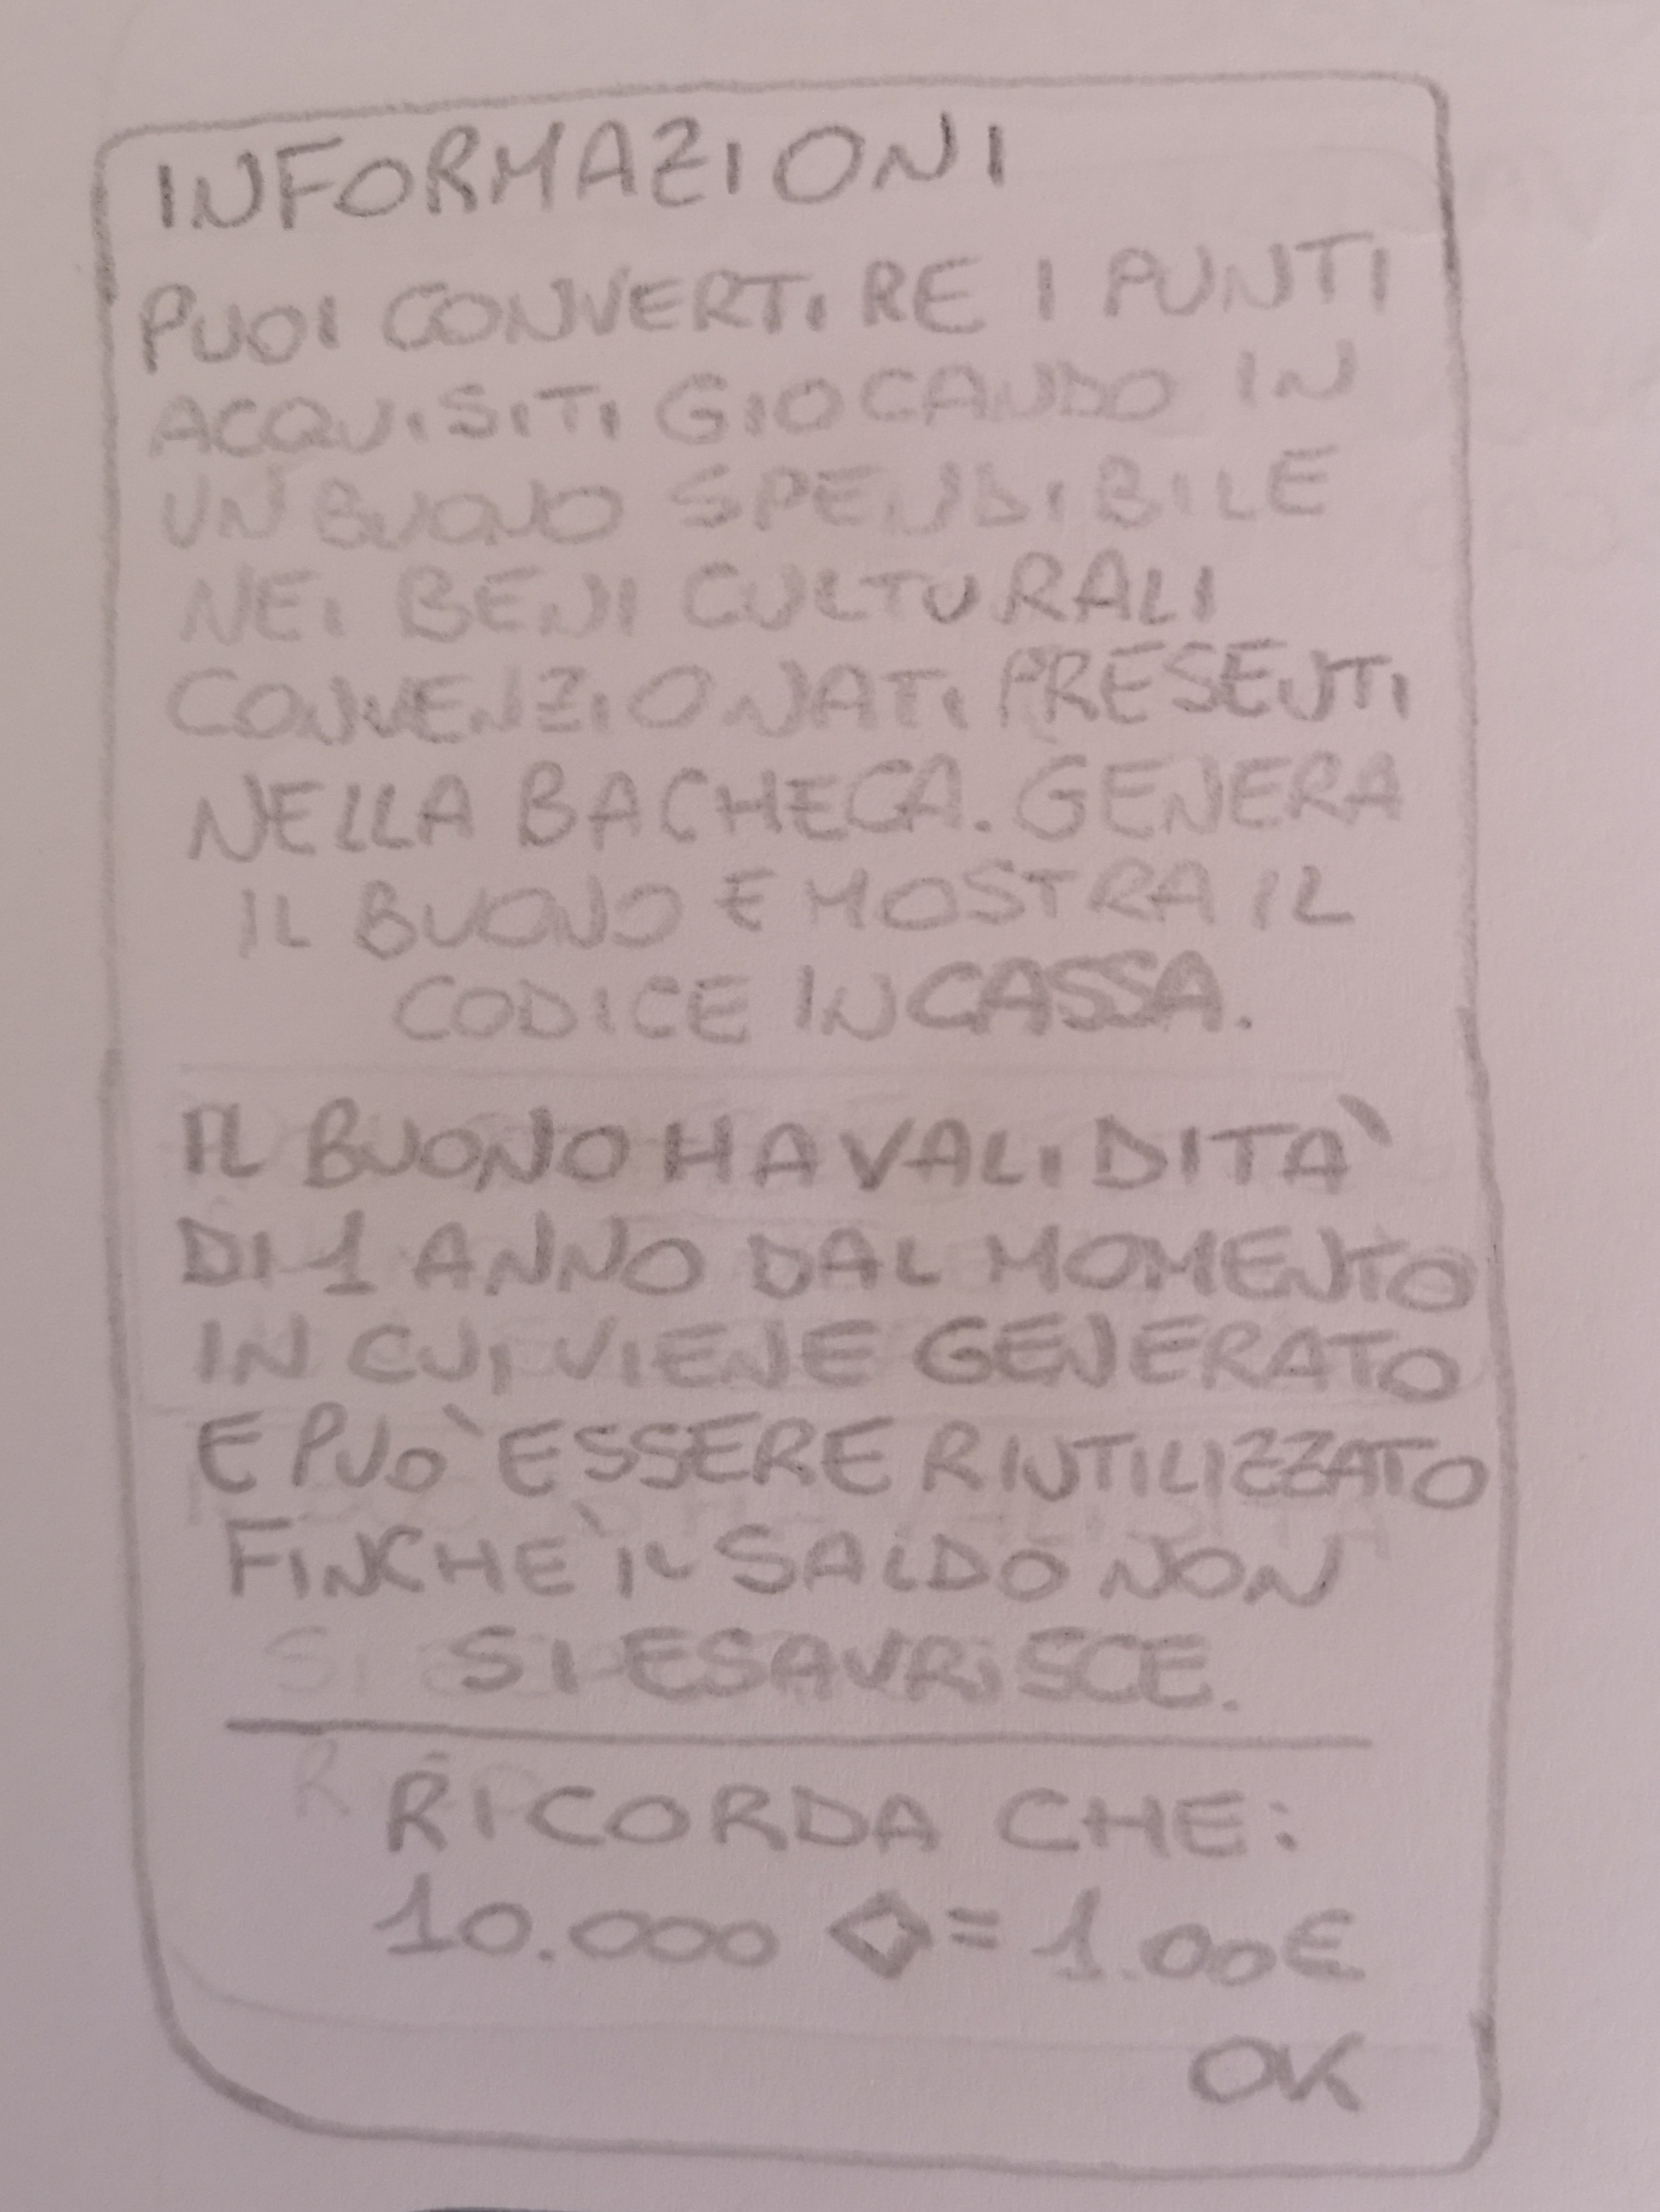 INFORMAZIONI
PUOI CONVERTIRE I PUNTI
ACQUISITI GIOCANDO IN
UN BUONO SPENDIBILE
NEI BENI CULTURALI
CONVENZIONATI PRESENTI
NELLA BACHECA. GENERA
IL BUONO E MOSTRA IL
CODICE IN CASSA.
IL BUONO HA VALIDITÀ
DI 1 ANNO DAL MOMENTO
IN CUI VIENE GENERATO
E PUÒ ESSERE RIUTILIZZATO
FINCHÈ IL SALDO NON
SI ESAURISCE.
RICORDA CHE:
10.000 ◇ = 1.00€
OK